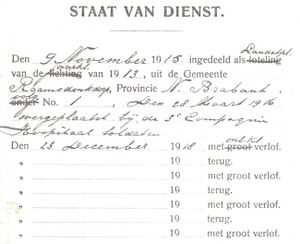 STAAT VAN DIENST.
Den 9 November 1915 ingedeeld als Landstpl. loteling
van de lichting van 1913, uit de Gemeente
Raamsdonk, Provincie N. Brabant
onder No. 1, Den 28 Maart 1916
overgeplaatst bij de 3e Compagnie
Hospitaal soldaten
Den 23 December 1918 met groot verlof.
„ 19 terug.
„ 19 met groot verlof.
„ 19 terug.
„ 19 met groot verlof.
„ 19 terug.
„ 19 met groot verlof.